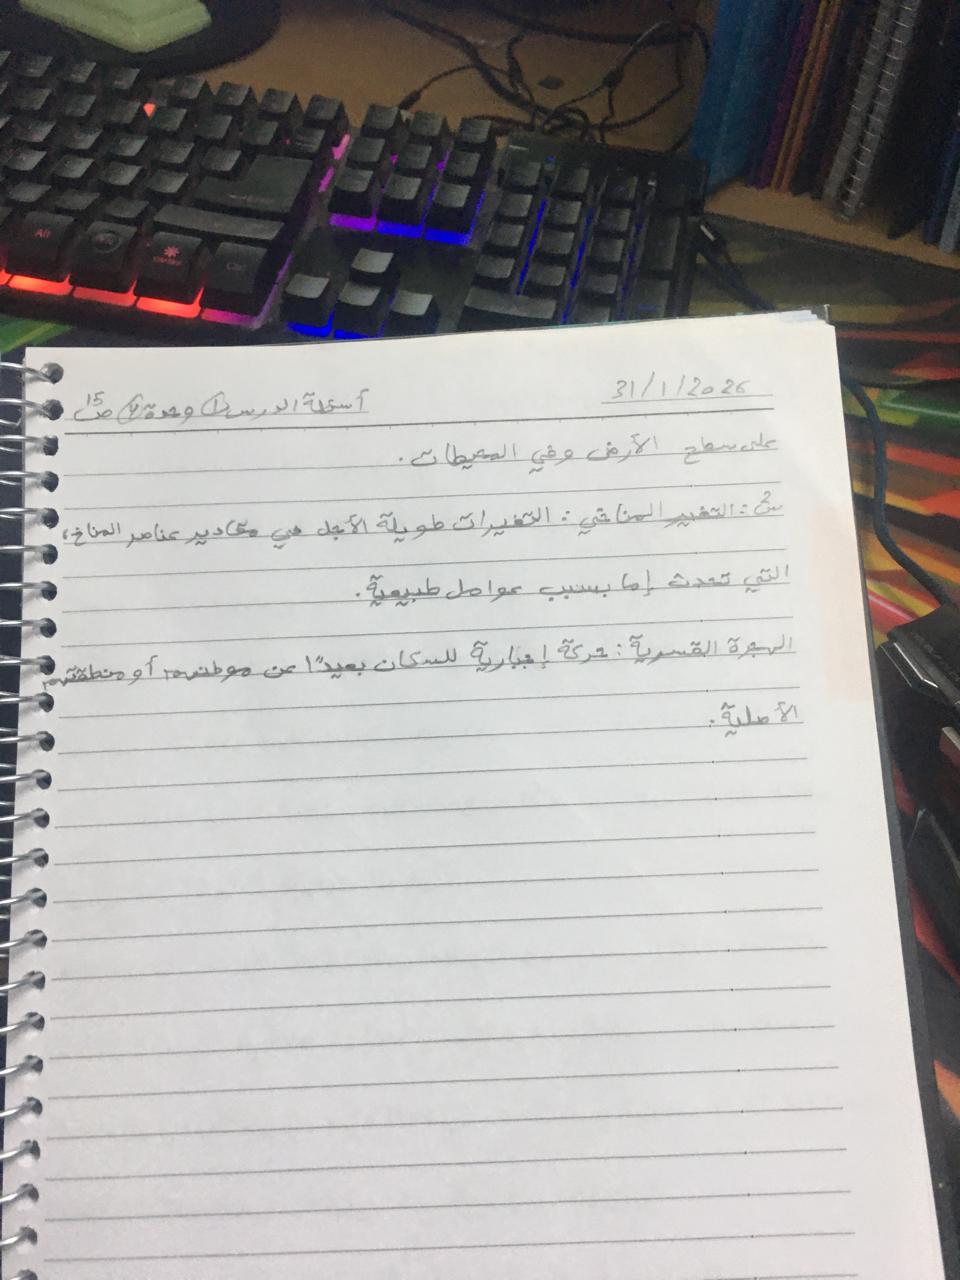 Alt
Ctrl
31/1/2026
أسئلة الدرس ① وحدة ④ ص 15
على سطح الأرض وفي المحيطات.
س2: التغير المناخي: التغيرات طويلة الأجل في مقادير عناصر المناخ،
التي تحدث إما بسبب عوامل طبيعية.
الهجرة القسرية: حركة إجبارية للسكان بعيدًا عن موطنهم أو منطقتهم
الأصلية.